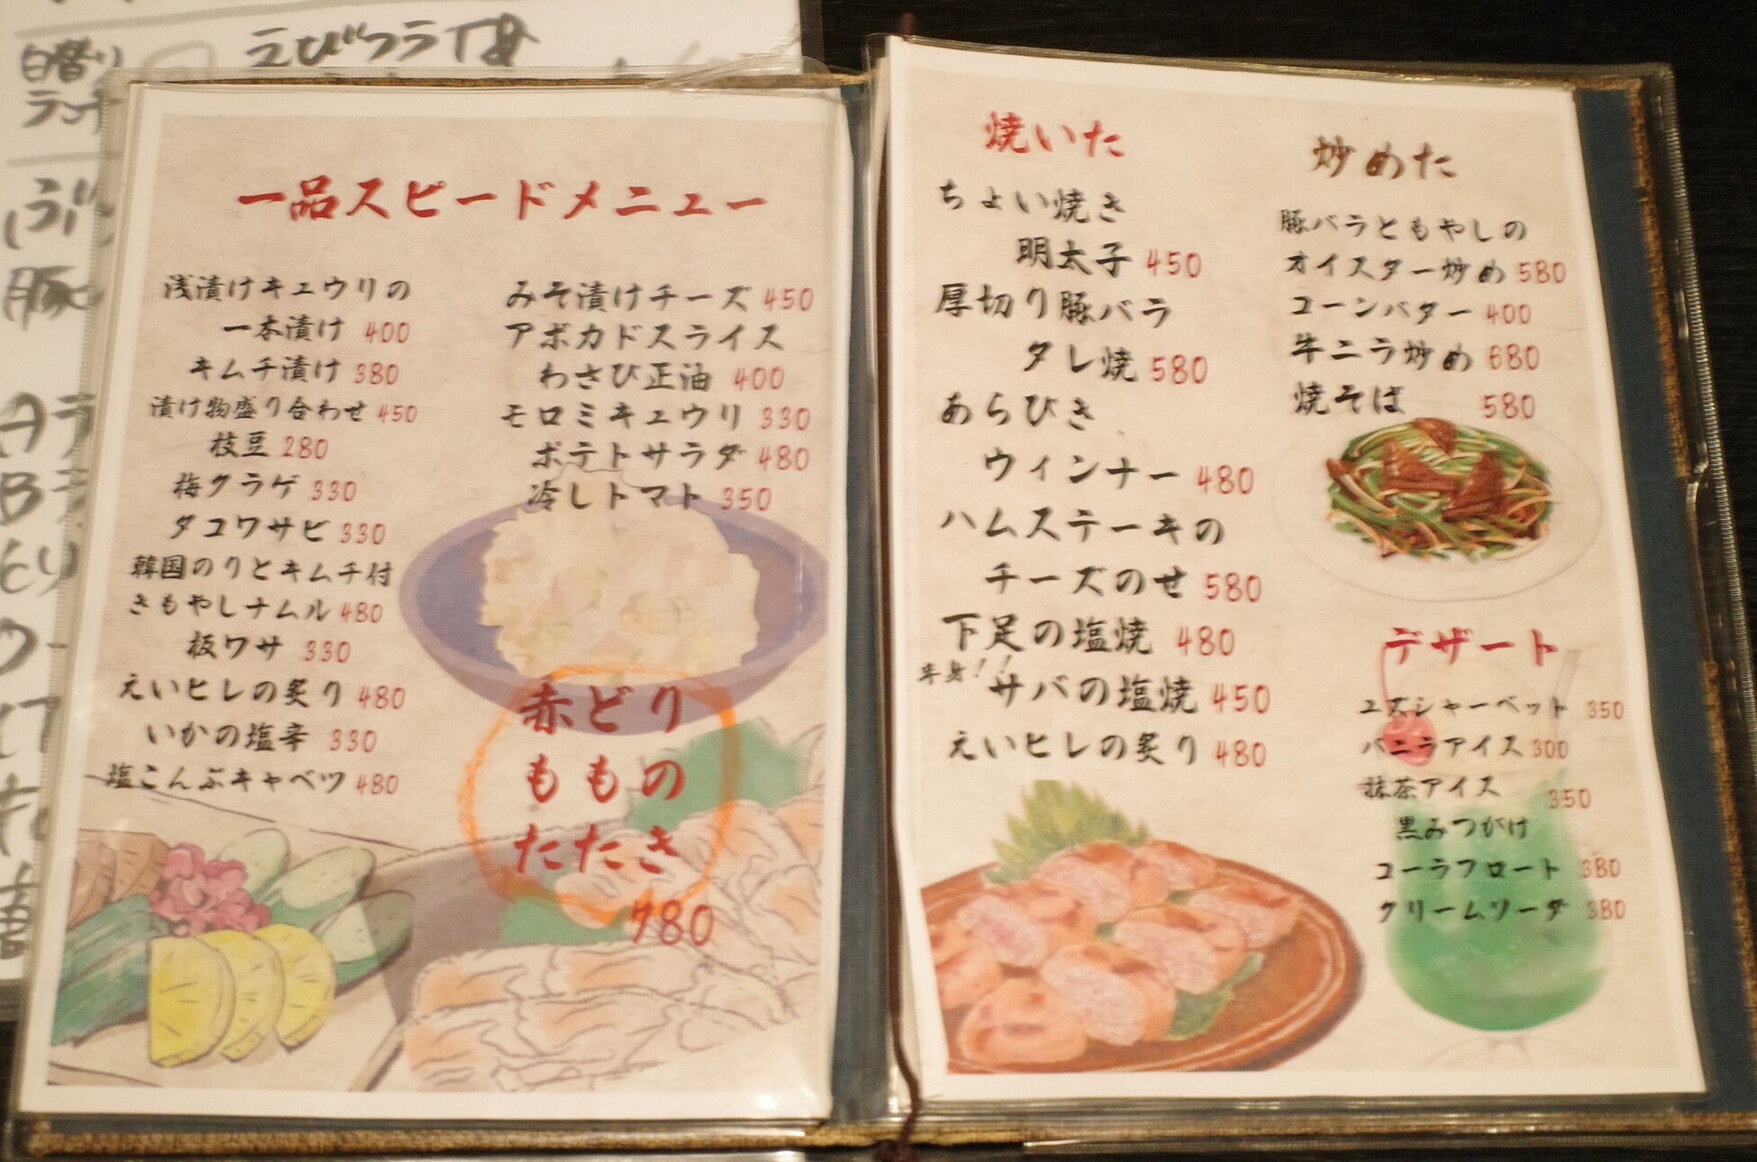 日替り
えびフライ
一品スピードメニュー
浅漬けキュウリの
一本漬け 400
キムチ漬け 380
漬け物盛り合わせ 450
枝豆 280
梅クラゲ 330
タコワサビ 330
韓国のりとキムチ付
きもやしナムル 480
板ワサ 330
えいヒレの炙り 480
いかの塩辛 330
塩こんぶキャベツ 480
みそ漬けチーズ 450
アボカドスライス
わさび正油 400
モロミキュウリ 330
ポテトサラダ 480
冷しトマト 350
赤どり
ももの
たたき
780
焼いた
ちょい焼き
明太子 450
厚切り豚バラ
タレ焼 580
あらびき
ウィンナー 480
ハムステーキの
チーズのせ 580
下足の塩焼 480
半身!!
サバの塩焼 450
えいヒレの炙り 480
炒めた
豚バラともやしの
オイスター炒め 580
コーンバター 400
牛ニラ炒め 680
焼そば 580
デザート
ユズシャーベット 350
バニラアイス 300
抹茶アイス 350
黒みつがけ
コーラフロート 380
クリームソーダ 380